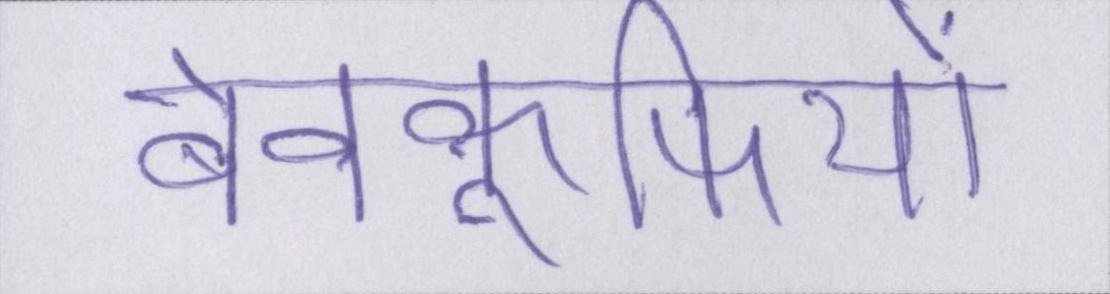 बेवकूफियों